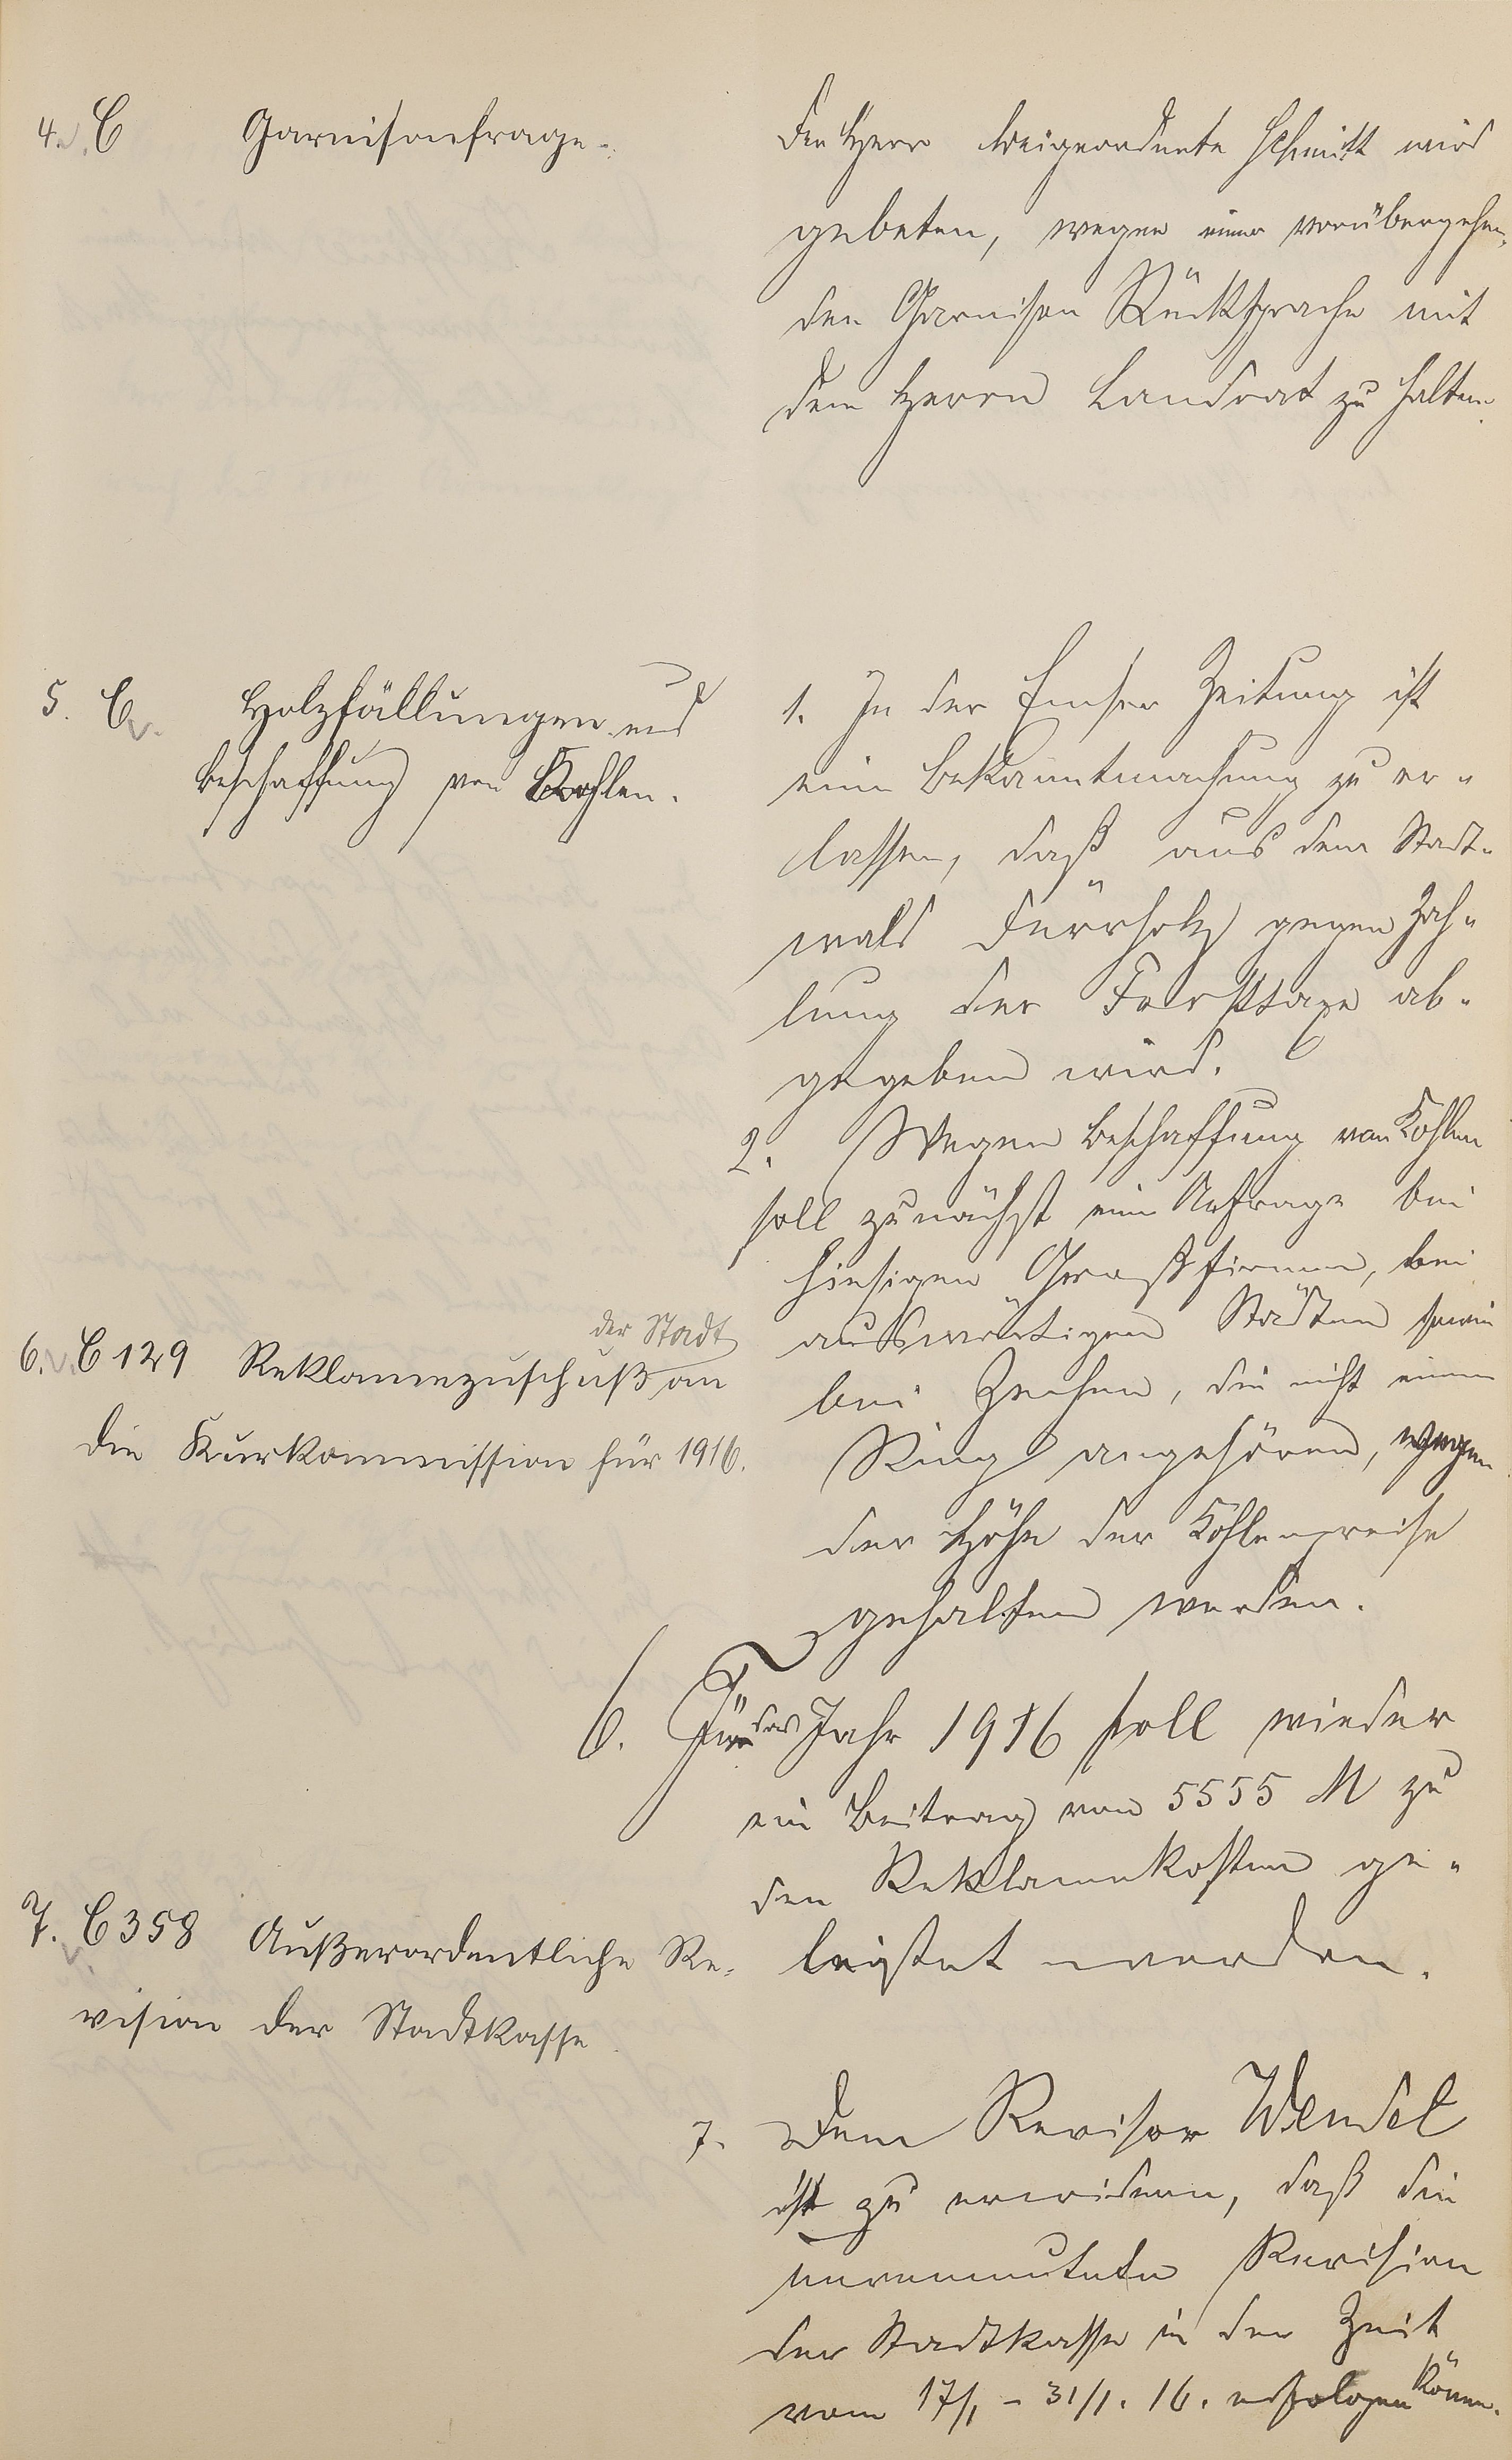 4. C Garnisonfrage.
Der Herr Beigeordnete Schmitt wird
gebeten, wegen einer vorübergehen-
den Garnison Rücksprache mit
dem Herrn Landrat zu halten.
5. C. Holzfällungen und
Beschaffung von Kohlen.
1. In der Emser Zeitung ist
eine Bekanntmachung zu er-
lassen, daß aus dem Stadt-
wald Dürrholz gegen Zah-
lung der Forsttaxe ab-
gegeben wird.
2. Wegen Beschaffung von Kohlen
soll zunächst eine Anfrage bei
hiesigen Großfirmen, bei
auswärtigen Städten sowie
bei Zechen, die nicht einem
Ring angehören, wegen
der Höhe der Kohlenpreise
gehalten werden.
6. C 129 Reklamezuschuß der Stadt an
die Kurkommission für 1916.
6. Für das Jahr 1916 soll wieder
ein Beitrag von 5555 M zu
den Reklamekosten ge-
leistet werden.
7. C 358 Außerordentliche Re-
vision der Stadtkasse
7. Dem Revisor Wendel
ist zu erwidern, daß die
unvermutete Revision
der Stadtkasse in der Zeit
vom 17/1 - 31/1. 16. erfolgen könne.